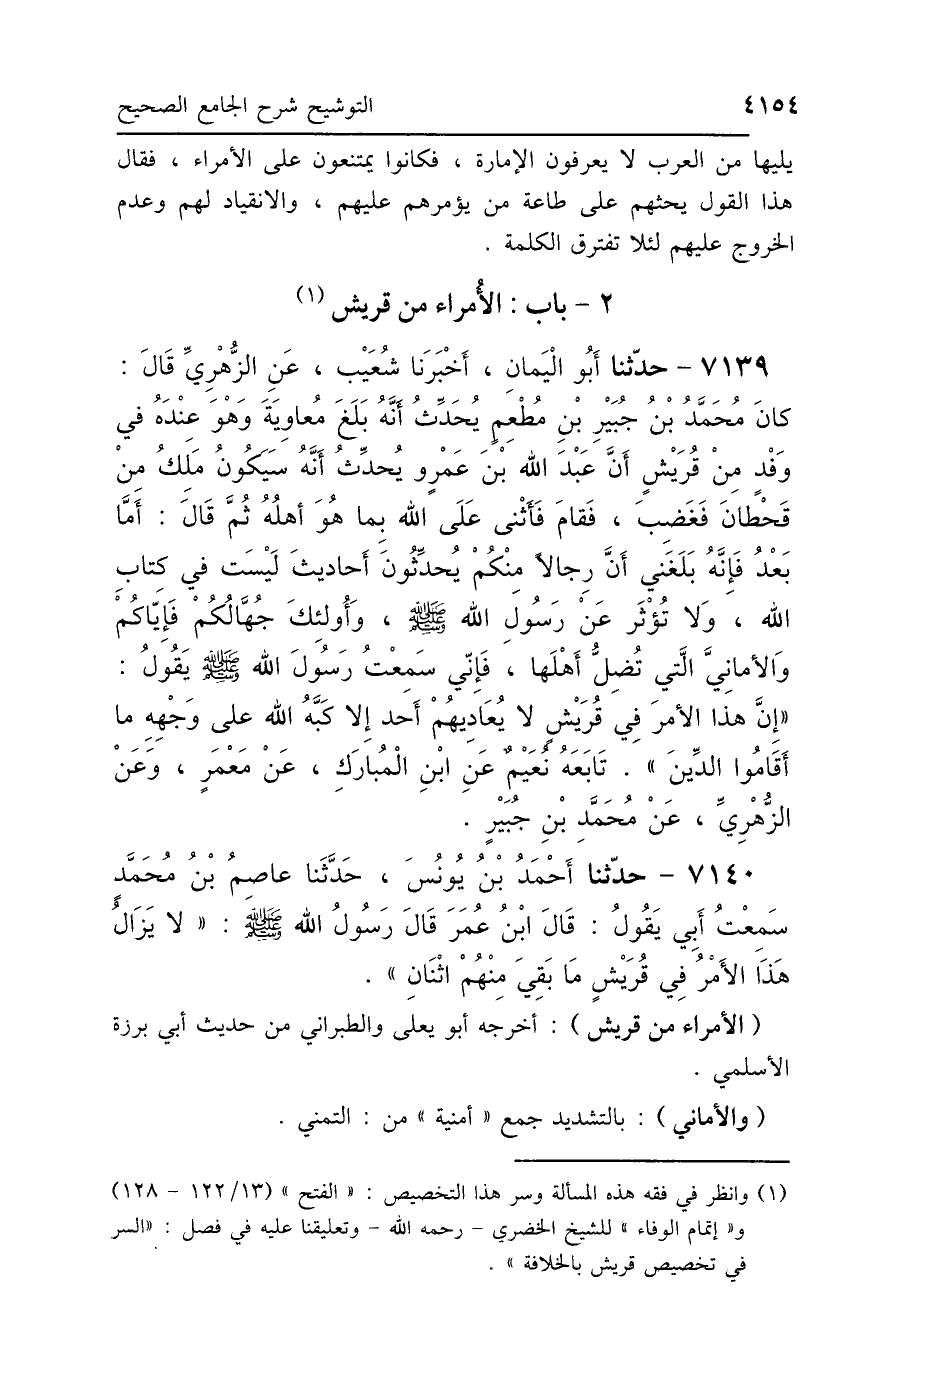 ٤١٥٤ التوشيح شرح الجامع الصحيح
يليها من العرب لا يعرفون الإمارة ، فكانوا يمتنعون على الأمراء ، فقال
هذا القول يحثهم على طاعة من يؤمرهم عليهم ، والانقياد لهم وعدم
الخروج عليهم لئلا تفترق الكلمة .
٢ - باب : الأُمراء من قريش (١)
٧١٣٩ - حدّثنا أَبُو الْيَمان ، أَخْبَرَنا شُعَيْب ، عَنِ الزُّهْرِيِّ قَالَ :
كانَ مُحَمَّدُ بْنُ جُبَيْرِ بْنِ مُطْعِمٍ يُحَدِّثُ أَنَّهُ بَلَغَ مُعاويَةَ وَهْوَ عِنْدَهُ في
وَفْدٍ مِنْ قُرَيْشٍ أَنَّ عَبْدَ الله بْنَ عَمْرٍو يُحدِّثُ أَنَّهُ سَيَكُونُ مَلِكُ مِنْ
قَحْطانَ فَغَضِبَ ، فَقامَ فَأَثْنى عَلَى الله بِما هُوَ أهلُهُ ثُمَّ قَالَ : أَمَّا
بَعْدُ فَإِنَّهُ بَلَغَني أَنَّ رِجالاً مِنْكُمْ يُحدِّثُونَ أَحاديثَ لَيْسَت في كتابِ
الله ، وَلا تُؤْثَر عَنْ رَسُولِ الله ﷺ ، وَأُولئِكَ جُهَّالُكُمْ فَإِيّاكُمْ
وَالأمانِيَّ الَّتي تُضِلُّ أَهْلَها ، فَإِنّي سَمِعْتُ رَسُولَ الله ﷺ يَقُولُ :
«إِنَّ هذا الأمرَ فِي قُرَيْشٍ لا يُعَادِيهُمْ أَحد إلا كَبَّهُ الله على وَجْهِهِ ما
أَقَامُوا الدِّينَ » . تَابَعَهُ نُعَيْمٌ عَنِ ابْنِ الْمُبارَكِ ، عَنْ مَعْمَرٍ ، وَعَنَ
الزُّهْرِيِّ ، عَنْ مُحَمَّدِ بْنِ جُبَيْرٍ .
٧١٤٠ - حدّثنا أَحْمَدُ بْنُ يُونُسَ ، حَدَّثَنا عاصِمُ بْنُ مُحَمَّدٍ
سَمِعْتُ أَبِي يَقُولُ : قَالَ ابْنُ عُمَرَ قَالَ رَسُولُ الله ﷺ : « لا يَزَالُ
هَذَا الأَمْرُ فِي قُرَيْشٍ مَا بَقِيَ مِنْهُمْ اثْنَانِ » .
( الأمراء من قريش ) : أخرجه أبو يعلى والطبراني من حديث أبي برزة
الأسلمي .
( والأماني ) : بالتشديد جمع « أمنية » من : التمني .
(١) وانظر في فقه هذه المسألة وسر هذا التخصيص : « الفتح » (١٢٢/١٣ - ١٢٨)
و« إتمام الوفاء » للشيخ الخضري - رحمه الله - وتعليقنا عليه في فصل : «السر
في تخصيص قريش بالخلافة » .